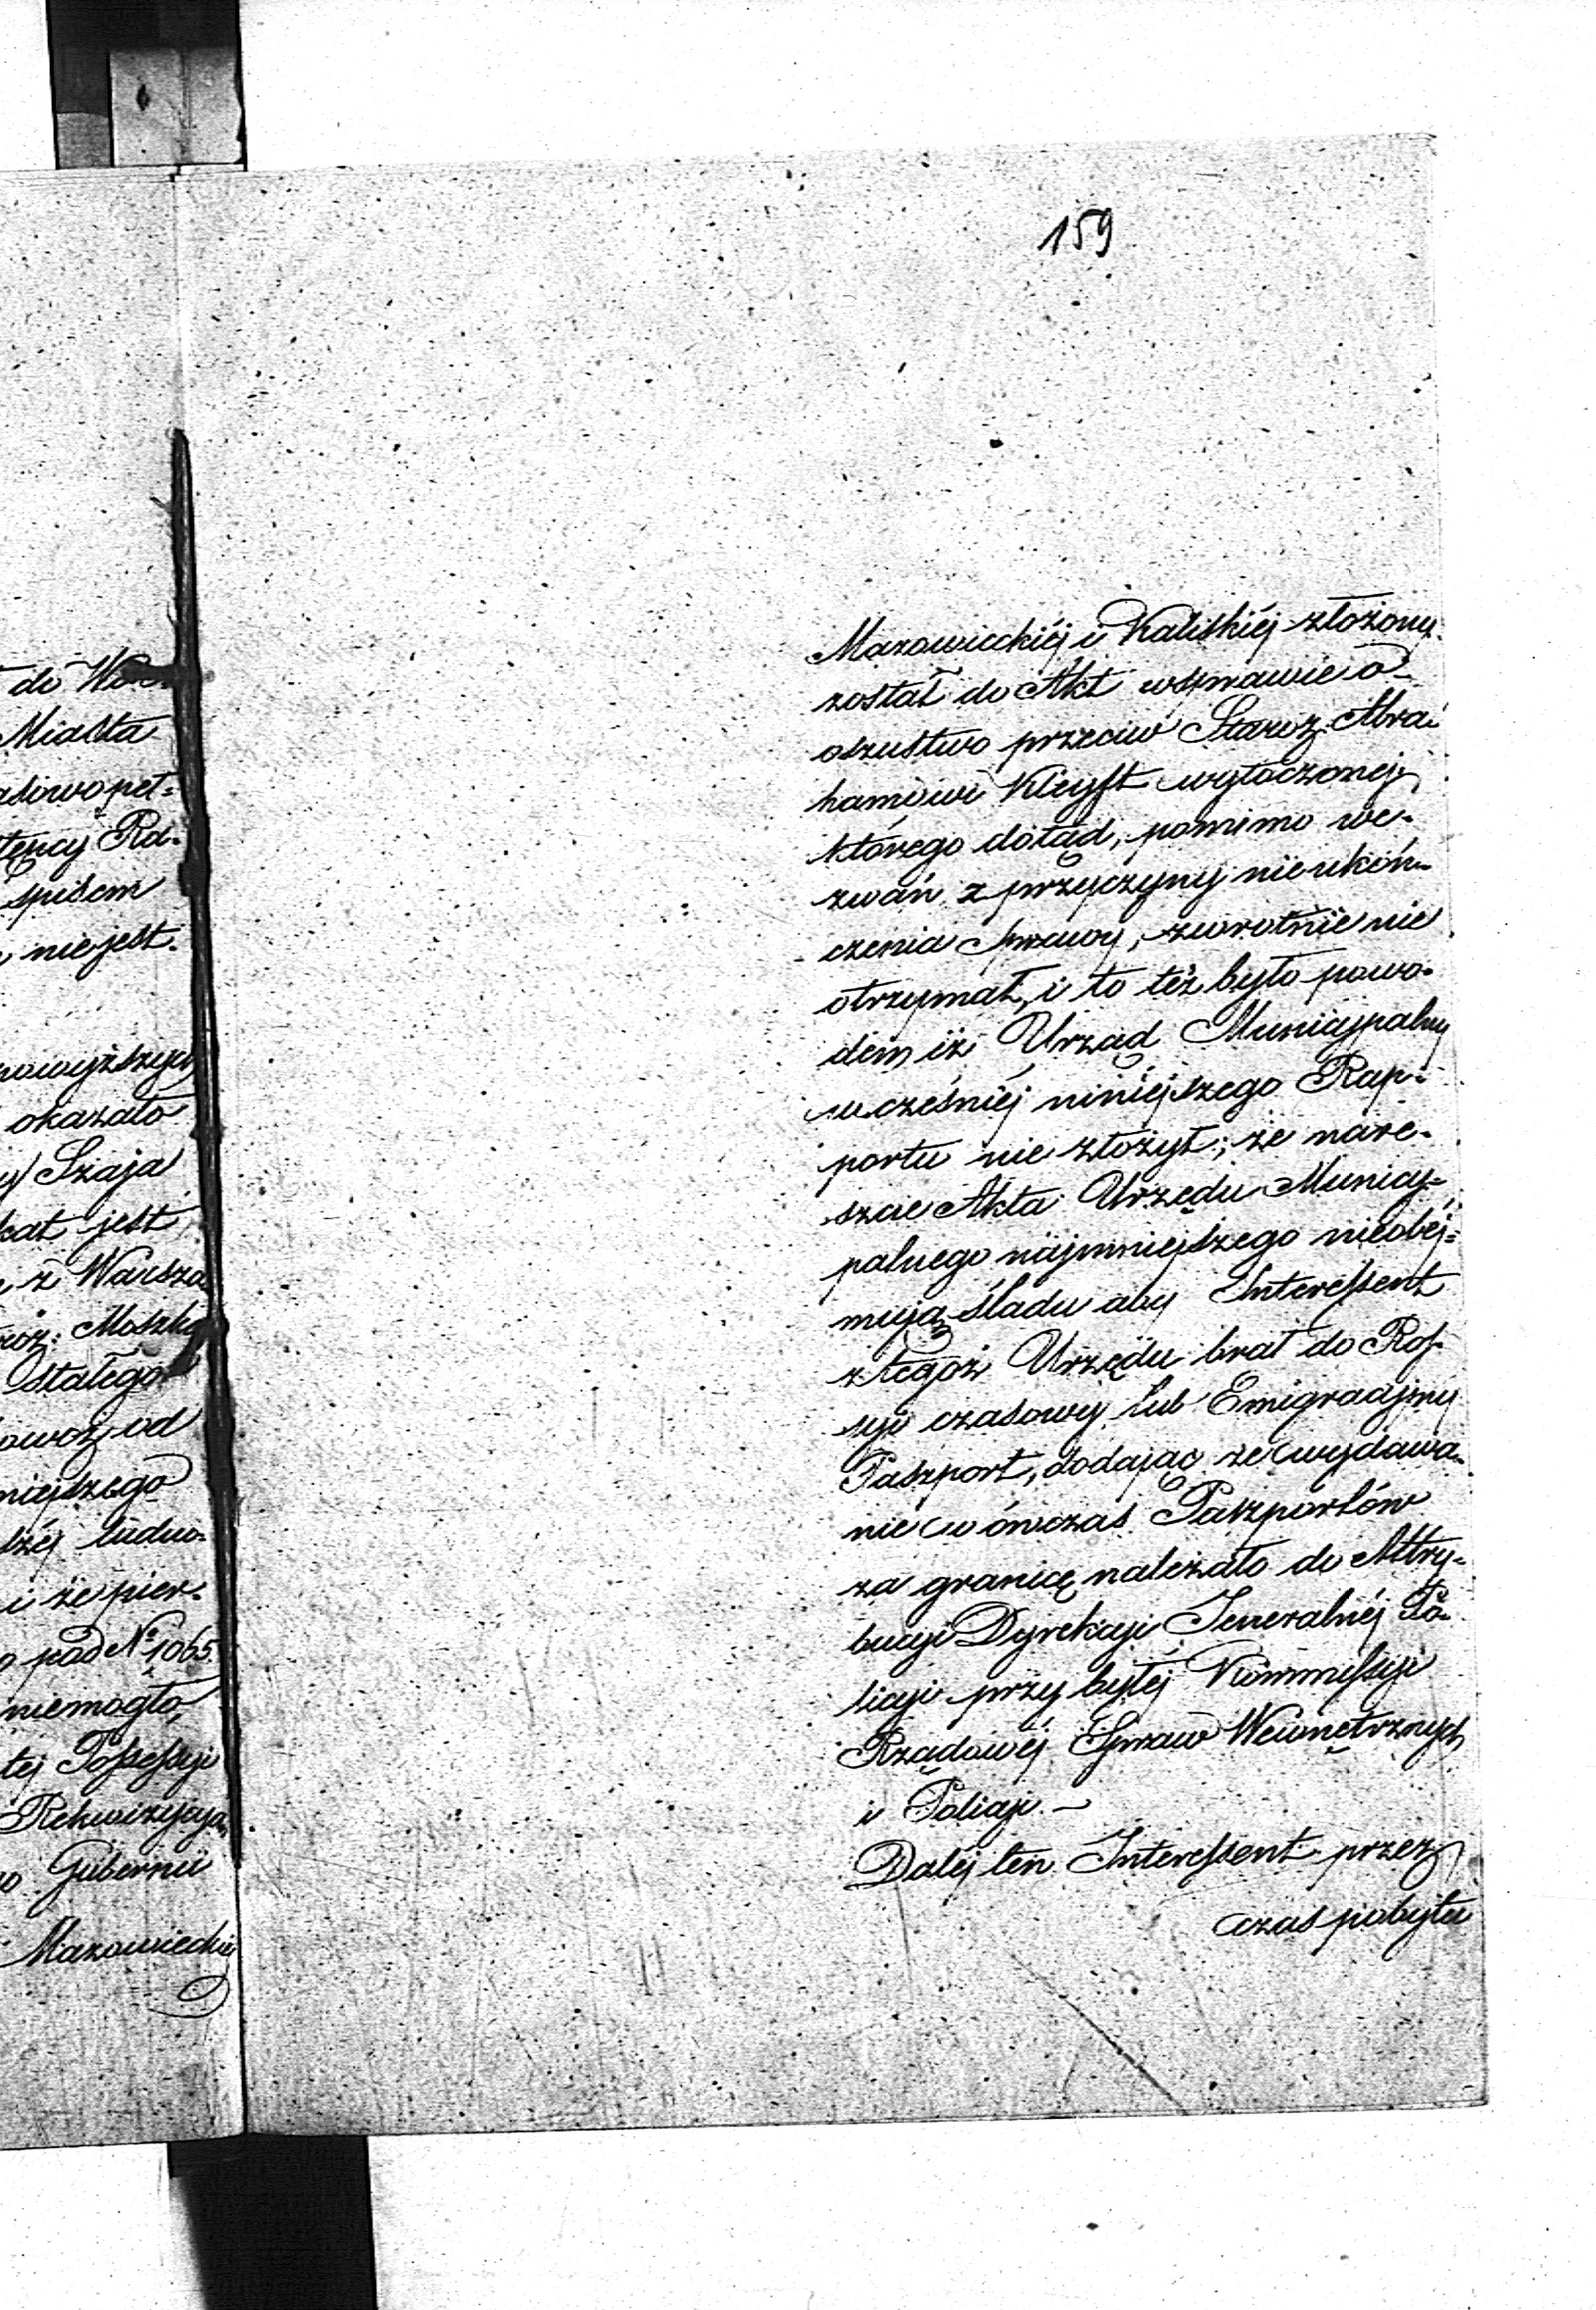 159
do
Miasta
asowo peł=
tęncy Rd.
spisem
nie jest.
powyższych
okazało
Szaja
kat jest
z Warsza
roz: Moszka
stałego
od
niejszego
dzéj ludno-
i że pier-
pod No 1065.
niemogło,
tej Possessyi
Rekwizycya
Gubernii
Mazowieckiéj
Mazowieckiéj i Kaliskiéj złożony
został do Akt wsprawie o
oszustwo przeciw Staroz. Abra-
hamowi Kleyft wytoczonej,
którego dotąd, pomimo we-
zwań, z przyczyny nieukoń-
czenia sprawy, zwrotnie nie
otrzymał, i to też było powo-
dem iż Urząd Municypalny
wcześniéj niniejszego Rap-
portu nie złożył; że nare-
szcie Akta Urzędu Municy-
palnego najmniejszego nieobéj=
mują śladu aby Interessent
z tegoż Urzędu brał do Ros-
syi czasowy lub Emigracyjny
Paszport, dodając że wydawa-
nie wówczas Paszportów
za granicę należało do Attry-
bucyi Dyrekcyi Jeneralnéj Po-
licyi przy byłéj Kommissyi
Rządowéj Spraw Wewnętrznych
i Policyi. –
Daléj ten Interessent przez
czas pobytu